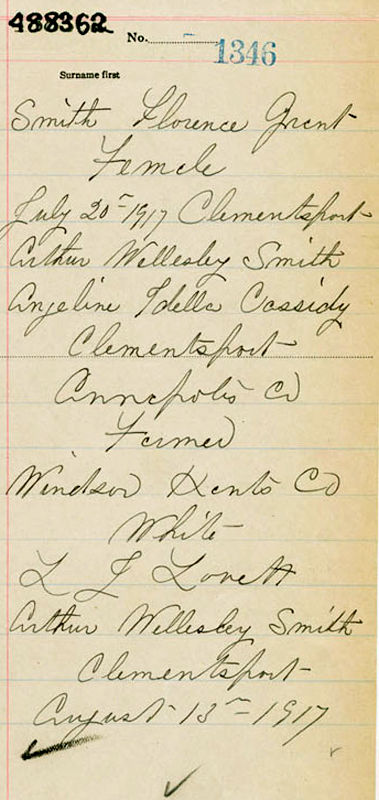 488362
No. 1346
Surname first
Smith Florence Grant
Female
July 20th 1917 Clementsport
Arthur Wellesley Smith
Angeline Idella Cassidy
Clementsport
Annapolis Co
Farmer
Windsor Hants Co
White
L J Lovett
Arthur Wellesley Smith
Clementsport
August 13th 1917